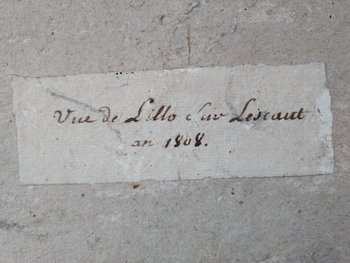 Vue de Lillo sur Lescaut
an 1808.